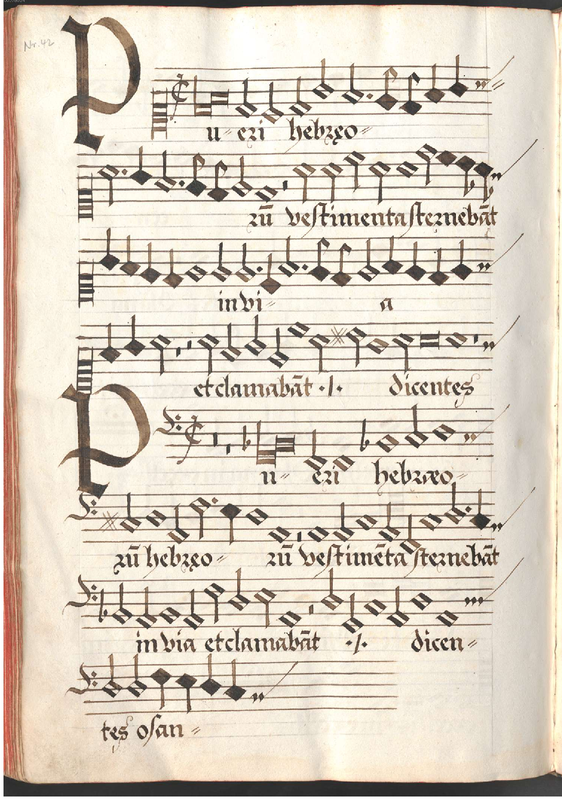 Nr. 42
Pu=eri hebręo=
rū vestimenta sternebāt
in vi= a
et clamabāt ·/· dicentes
Pu=eri hebræo=
rū hebręo= rū vestimēta sternebāt
in via et clamabāt ·/· dicen=
tes osan=